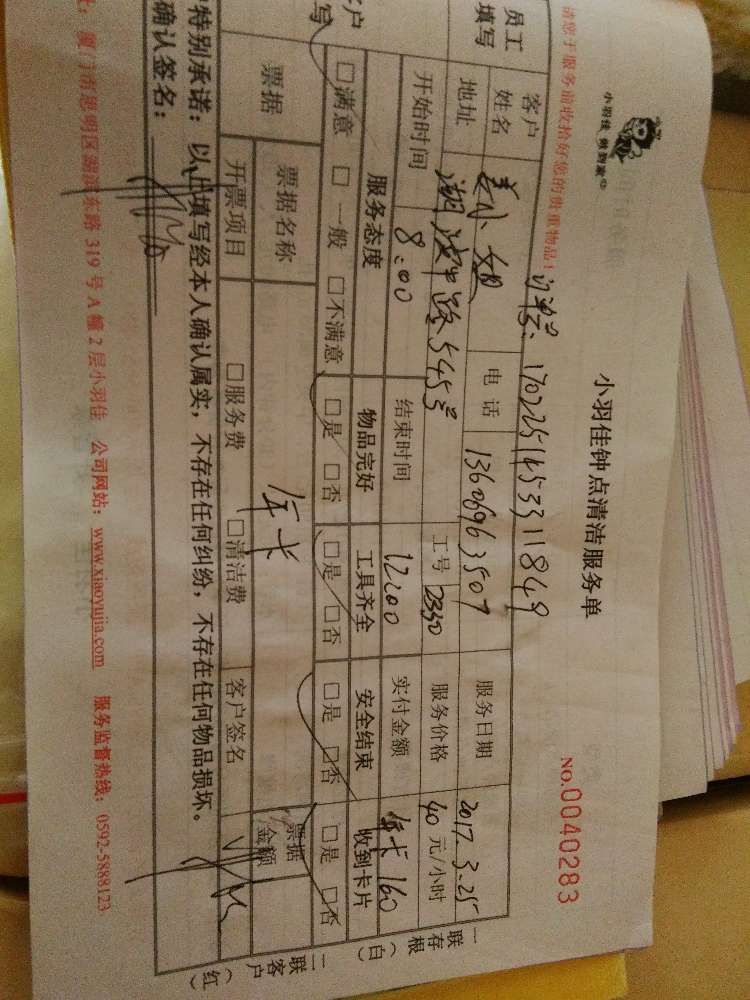 小羽佳 做到家
小羽佳钟点清洁服务单
NO.0040283
请您于服务前收拾好您的贵重物品！
订单: 1702251453311849
员工填写
客户姓名 姜小姐 电话 13606963507 服务日期 2017.3.25
地址 湖滨中路545号 工号 2350 服务价格 40 元/小时
开始时间 8:00 结束时间 12:00 实付金额 年卡 160
客户 写
服务态度 物品完好 工具齐全 安全结束 收到卡片
□满意 □一般 □不满意 □是 □否 □是 □否 □是 □否 □是 □否
票据 票据名称 年卡 票据金额
开票项目 □服务费 □清洁费 客户签名
特别承诺：以上填写经本人确认属实，不存在任何纠纷，不存在任何物品损坏。
确认签名：
址：厦门市思明区湖滨东路 319 号 A 幢 2 层小羽佳 公司网站：www.xiaoyujia.com 服务监督热线：0592-5888123
一联存根（白）
二联客户（红）